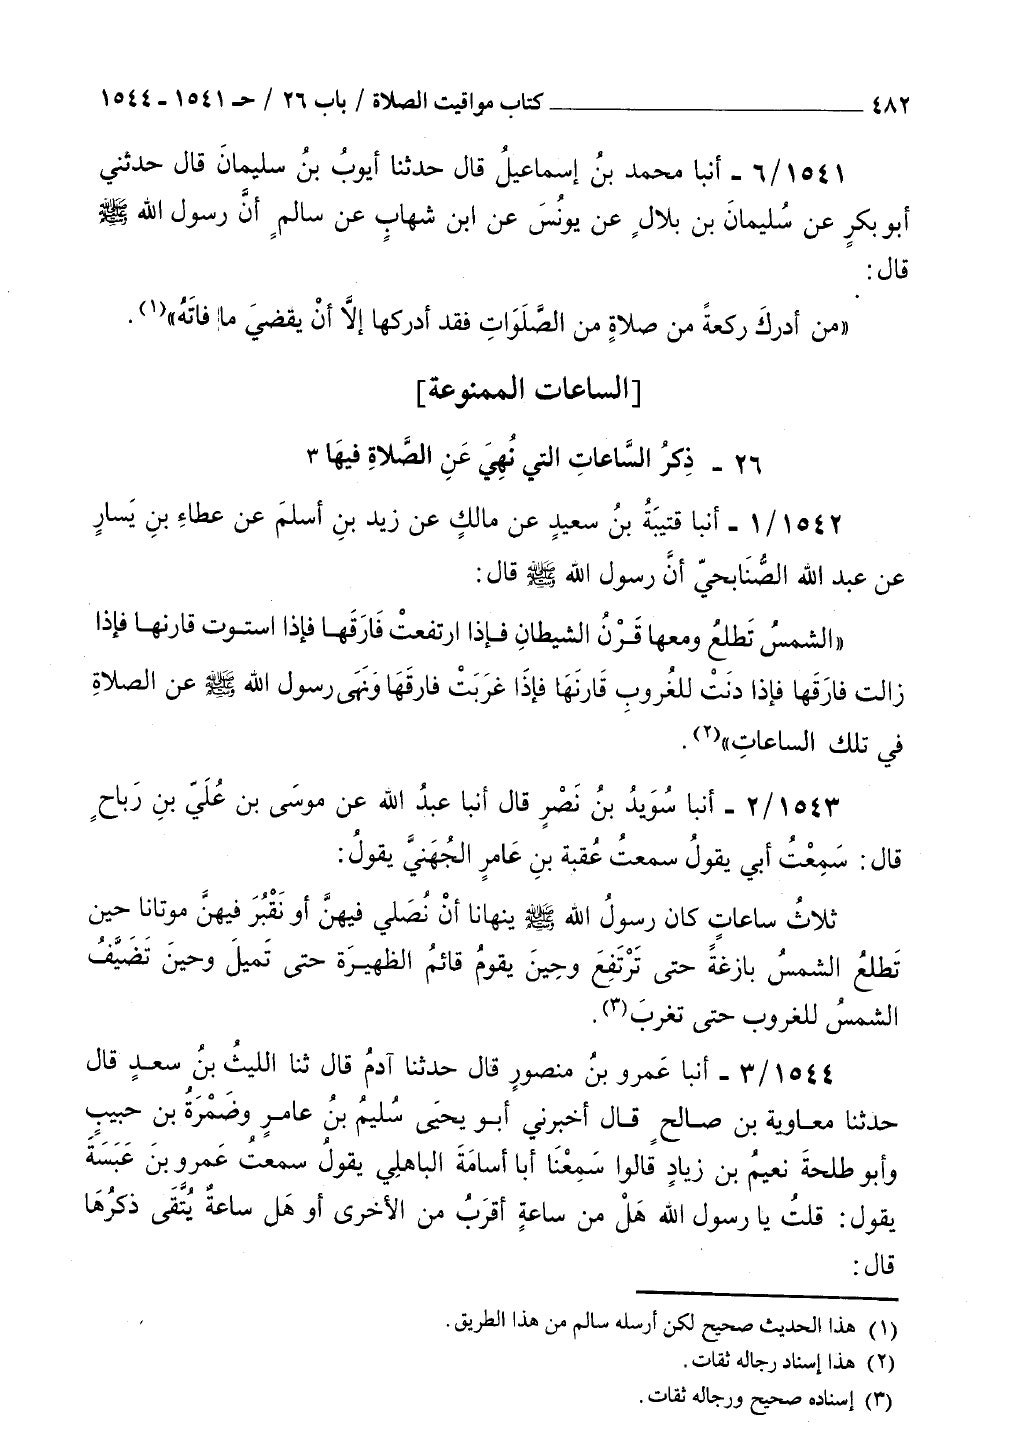 ٤٨٢ ـــــــــــــــــ كتاب مواقيت الصلاة / باب ٢٦ / حـ ١٥٤١ - ١٥٤٤
٦/١٥٤١ - أنبا محمد بنُ إسماعيلُ قال حدثنا أيوبُ بنُ سليمانَ قال حدثني
أبو بكرٍ عن سُليمانَ بن بلالٍ عن يونُسَ عن ابن شهابٍ عن سالمٍ أنَّ رسول الله ﷺ
قال:
«من أدركَ ركعةً من صلاةٍ من الصَّلَوَاتِ فقد أدركها إلاَّ أنْ يقضيَ ما فاتَهُ»(١).
[الساعات الممنوعة]
٢٦ - ذِكرُ السَّاعاتِ التي نُهِيَ عَنِ الصَّلاةِ فيهَا ٣
١/١٥٤٢ - أنبا قتيبَةُ بنُ سعيدٍ عن مالكٍ عن زيد بنِ أسلمَ عن عطاءِ بنِ يَسارٍ
عن عبد الله الصُّنَابحيّ أنَّ رسول الله ﷺ قال:
«الشمسُ تَطلعُ ومعها قَرْنُ الشيطانِ فإذا ارتفعتْ فَارَقَها فإذا استوت قارنها فإذا
زالت فارَقَها فإذا دنَتْ للغُروبِ قَارنَهَا فإذَا غرَبَتْ فارقَهَا ونَهَى رسول الله ﷺ عن الصلاةِ
في تلك الساعاتِ»(٢).
٢/١٥٤٣ - أنبا سُوَيدُ بنُ نَصْرٍ قال أنبا عبدُ الله عن موسَى بن عُلَيّ بنِ رَباحٍ
قال: سَمِعْتُ أبي يقولُ سمعتُ عُقبة بنِ عَامرٍ الجُهَنيَّ يقولُ:
ثلاثُ ساعاتٍ كان رسولُ الله ﷺ ينهانا أنْ نُصَلي فيهنَّ أو نَقْبُرَ فيهنَّ موتانا حين
تَطلعُ الشمسُ بازغةً حتى تَرْتَفِعَ وحِينَ يقومُ قائمُ الظهيرَة حتى تَميلَ وحينَ تَضَيَّفُ
الشمسُ للغروب حتى تغربَ(٣).
٣/١٥٤٤ - أنبا عَمرو بنُ منصورٍ قال حدثنا آدمُ قال ثنا الليثُ بنُ سعدٍ قال
حدثنا معاوية بن صالحٍ قال أخبرني أبو يحيَى سُليمُ بنُ عامرٍ وضَمْرَةُ بن حبيبٍ
وأبو طلحةَ نعيمُ بن زيادٍ قالوا سَمِعْنَا أبا أسامَةَ الباهلِي يقولُ سمعتُ عَمرو بنَ عَبَسَةَ
يقول: قلتُ يا رسول الله هَلْ من ساعةٍ أقرَبُ من الأخرى أو هَل ساعةٌ يُتَّقَى ذكرُهَا
قال:
(١) هذا الحديث صحيح لكن أرسله سالم من هذا الطريق.
(٢) هذا إسناد رجاله ثقات.
(٣) إسناده صحيح ورجاله ثقات.